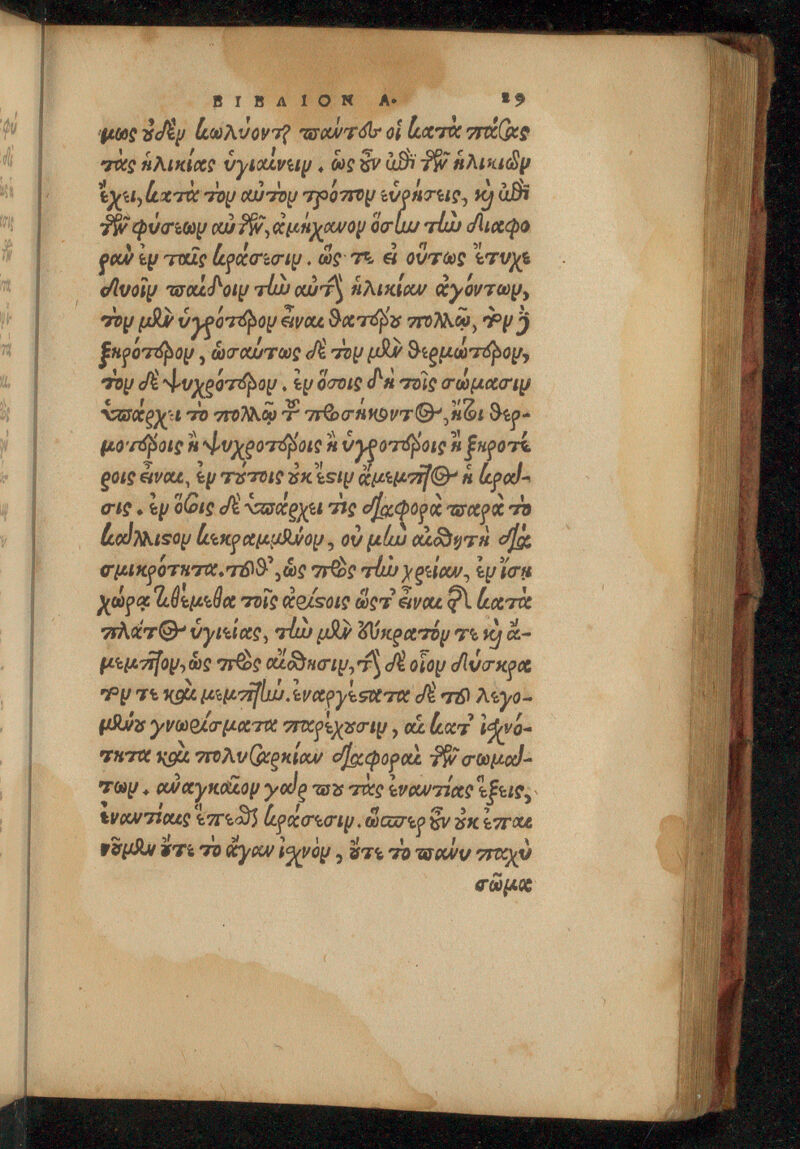 ΒΙΒΛΙΟΝ Α. 29
μως οὐδὲν κωλύονται πάντες οἱ κατὰ πάσας
τὰς ἡλικίας ὑγιαίνειν. ὡς οὖν ἐπὶ τῶν ἡλικιῶν
ἔχει, κατὰ τὸν αὐτὸν τρόπον εὑρήσεις, καὶ ἐπὶ
τῶν φύσεων αὐτῶν, ἀμήχανον ὅσην τὴν διαφο
ρὰν ἐν ταῖς κράσεσιν. ὥς τε εἰ οὕτως ἔτυχε
δυοῖν παίδοιν τὴν αὐτὴν ἡλικίαν ἀγόντων,
τὸν μὲν ὑγρότερον εἶναι θατέρου πολλῷ, τὸν δὲ
ξηρότερον, ὡσαύτως δὲ τὸν μὲν θερμώτερον,
τὸν δὲ ψυχρότερον. ἐν ὅσοις δ'ὴ τοῖς σώμασιν
ὑπάρχει τὸ πολλῷ τοῦ προσήκοντος, ἤτοι θερ-
μοτέροις ἢ ψυχροτέροις ἢ ὑγροτέροις ἢ ξηροτέ
ροις εἶναι, ἐν τούτοις οὐκ ἔστιν ἄμεμπτος ἡ κρᾶ-
σις. ἐν ὅσοις δὲ ὑπάρχει τὶς διαφορὰ παρὰ τὸ
κάλλιστον κεκραμμένον, οὐ μὴν αἰσθητὴ διὰ
σμικρότητα. τόθ', ὡς πρὸς τὴν χρείαν, ἐν ἴσῃ
χώρᾳ τιθέμεθα τοῖς ἀρίστοις ὥστ' εἶναι τῆς κατὰ
πλάτος ὑγιείας, τὴν μὲν εὔκρατόν τε καὶ ἄ-
μεμπτον, ὡς πρὸς αἴσθησιν, τὴν δὲ οἷον δύσκρα
τόν τε καὶ μεμπτήν. ἐναργέστατα δὲ τοῦ λεγο-
μένου γνωρίσματα παρέχουσιν, αἱ κατ' ἰσχνό-
τητα καὶ πολυσαρκίαν διαφοραὶ τῶν σωμά-
των. ἀναγκαῖον γάρ που τὰς ἐναντίας ἕξεις,
ἐναντίαις ἕπεσθαι κράσεσιν. ὥσπερ οὖν οὐκ ἐπαι
νοῦμεν οὔτε τὸ ἄγαν ἰσχνὸν, οὔτε τὸ πάνυ παχὺ
σῶμα